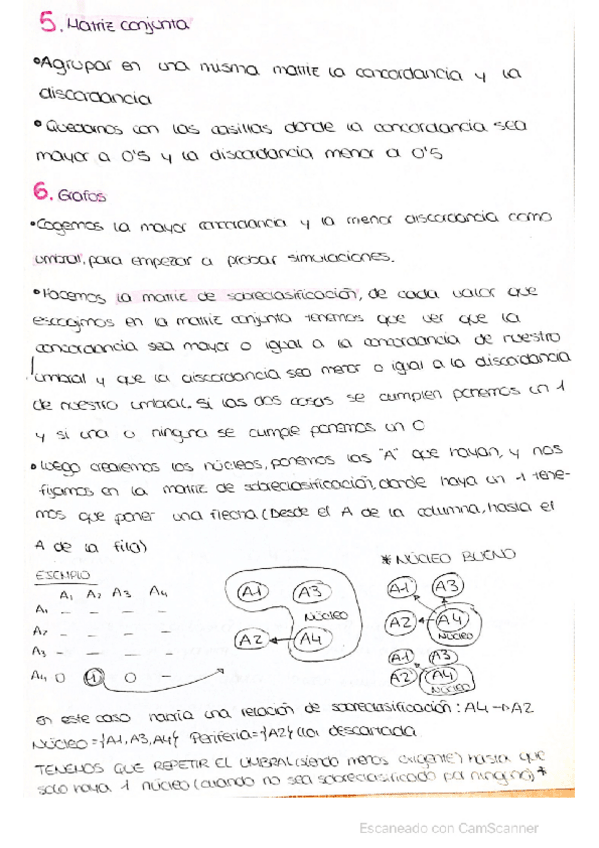 5. Matriz conjunta
•Agrupar en una misma matriz la concordancia y la
discordancia
•Quedarnos con las casillas donde la concordancia sea
mayor a 0'5 y la discordancia menor a 0'5
6. Grafos
•Cogemos la mayor concordancia y la menor discordancia como
umbral, para empezar a probar simulaciones.
•Hacemos la matriz de sobreclasificación, de cada valor que
escogimos en la matriz conjunta tenemos que ver que la
concordancia sea mayor o igual a la concordancia de nuestro
umbral y que la discordancia sea menor o igual a la discordancia
de nuestro umbral. Si las dos cosas se cumplen ponemos un 1
y si una o ninguna se cumple ponemos un 0
•Luego crearemos los núcleos, ponemos las "A" que hayan, y nos
fijamos en la matriz de sobreclasificación, donde haya un 1 tene-
mos que poner una flecha (Desde el A de la columna, hasta el
A de la fila)
* NÚCLEO BUENO
EJEMPLO
A1 A2 A3 A4
A1 - - - -
A2 - - - -
A3 - - - -
A4 0 1 0 -
A1 A3
NÚCLEO
A2 A4
A1 A3
A2 A4
NÚCLEO
A1 A3
A2 A4
NÚCLEO
en este caso habría una relación de sobreclasificación: A4 → A2
Núcleo = {A1, A3, A4} Periferia = {A2} descartada
TENEMOS QUE REPETIR EL UMBRAL (siendo menos exigente) hasta que
solo haya 1 núcleo (cuando no sea sobreclasificado por ninguno) *
Escaneado con CamScanner